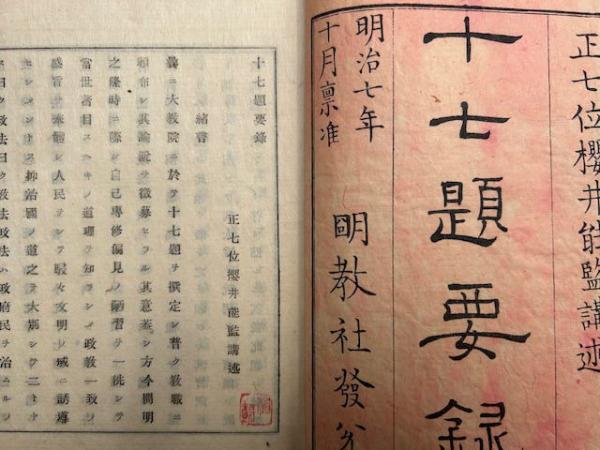 正七位櫻井能監講述
十七題要録
明治七年
十月禀准
明教社發兌
十七題要錄
正七位櫻井能監講述
緒言
曩ニ大敎院ニ於テ十七題ヲ撰定シ普ク敎職ニ
頒布シ其論說ヲ徵募セラル其意蓋シ方今開明
之隆時ニ際シ自己專修偏見ノ陋習ヲ一洗シテ
當世著目スヘキノ道理ヲ知ラシメ政敎一致ノ
盛旨ヲ奉體シ人民ヲシテ駸々文明ノ域ニ誘導
セシメントス抑治國ノ道之ヲ大別シテ二トナ
ス曰ク政法曰ク敎法政法ハ政府民ヲ治ムルノ